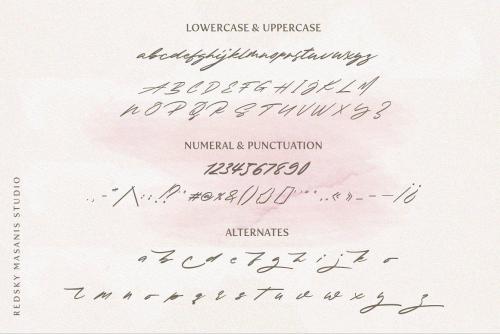 LOWERCASE & UPPERCASE
abcdefghijklmnopqrstuvwxyz
ABCDEFGHIJKLM
NOPQRSTUVWXYZ
NUMERAL & PUNCTUATION
1234567890
ALTERNATES
a b c d e f g h i j k o
z m n o p q r s t u v w x y z
REDSKY MASANIS STUDIO